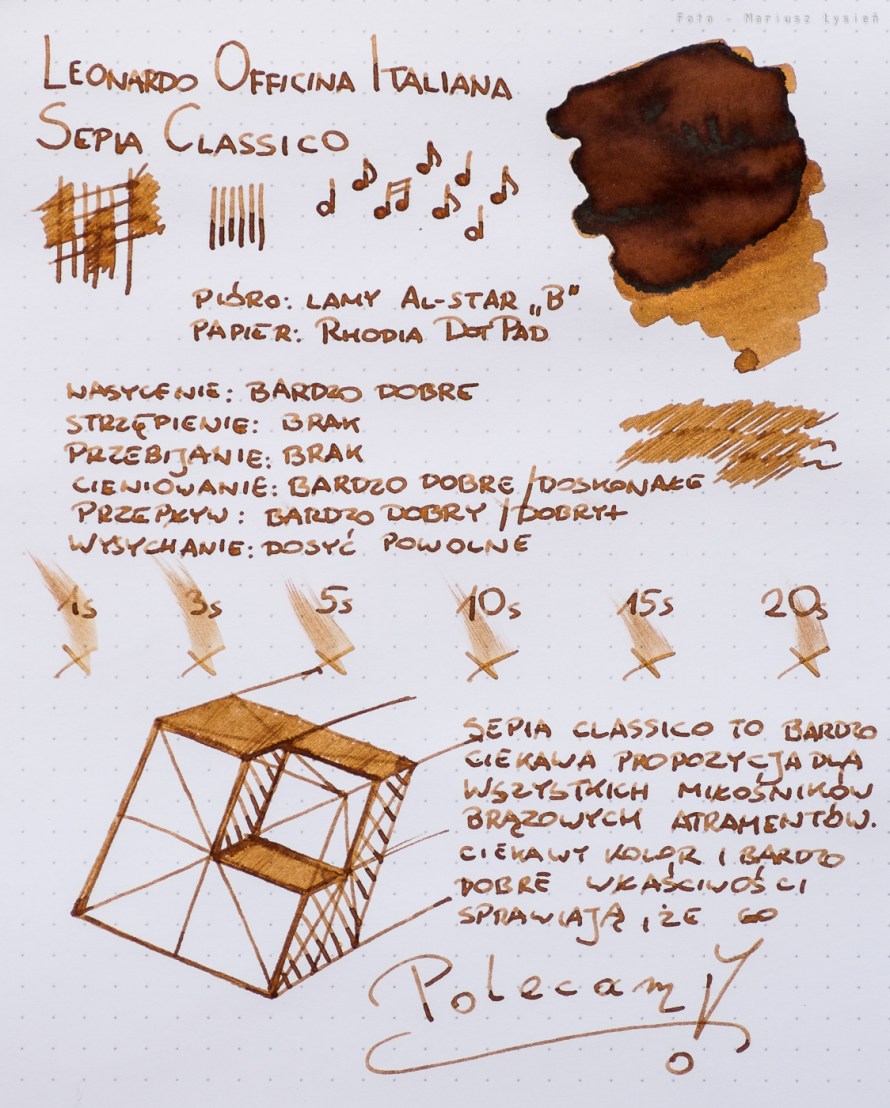 Foto - Mariusz Łysień
Leonardo Officina Italiana
Sepia Classico
Pióro: Lamy Al-Star „B”
Papier: Rhodia DotPad
Nasycenie: bardzo dobre
Strzępienie: brak
Przebijanie: brak
Cieniowanie: bardzo dobre/doskonałe
Przepływ: bardzo dobry/dobry+
Wysychanie: dosyć powolne
1s 3s 5s 10s 15s 20s
Sepia Classico to bardzo
ciekawa propozycja dla
wszystkich miłośników
brązowych atramentów.
Ciekawy kolor i bardzo
dobre właściwości
sprawiają, że go
Polecam!